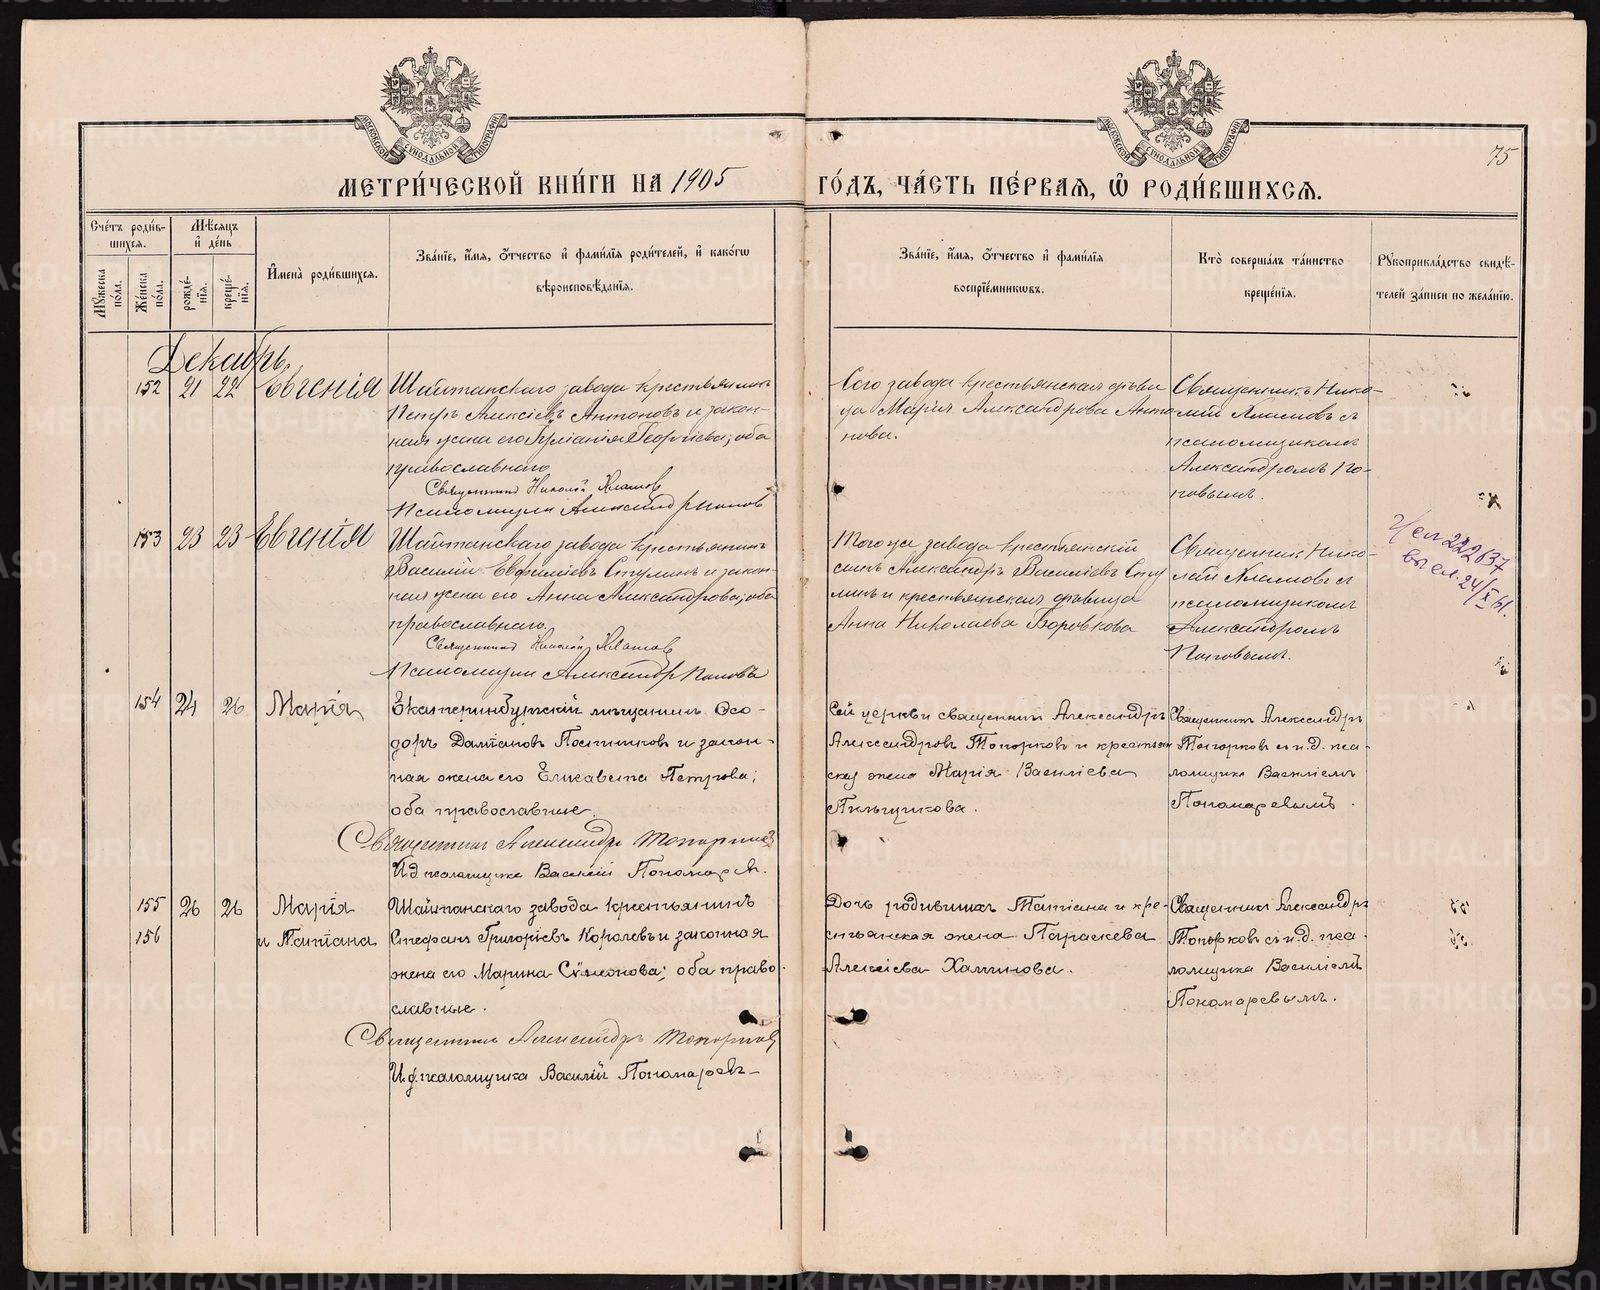 МЕТРИ́ЧЕСКОЙ КНИ́ГИ НА 1905 ГО́ДЪ, ЧА́СТЬ ПЕ́РВАѦ, Ѿ РОДИ́ВШИХСѦ.
75
Сче́тъ роди́в-
шихсѧ.
Мѣ́сѧцъ
и҆ де́нь
Мꙋ́жеска
по́ла.
Же́нска
по́ла.
рожде́-
нїѧ.
креще́-
нїѧ.
И҆мена̀ роди́вшихсѧ.
Зва́нїе, и҆́мѧ, ѻ҆́тчество и҆ фами́лїѧ роди́телей, и҆ како́гѡ
вѣроисповѣ́данїѧ.
Зва́нїе, и҆́мѧ, ѻ҆́тчество и҆ фами́лїѧ
воспрїе́мникѡвъ.
Кто̀ соверша́лъ та́инство
креще́нїѧ.
Рꙋкоприкла́дство свидѣ́-
телей за́писи по жела́нїю.
Декабрь.
152 21 22 Евгенія
Шайтанскаго завода крестьянинъ
Петръ Алексіевъ Антоновъ и закон-
ная жена его Георгіева; оба
православнаго
Священникъ Николай
Псаломщикъ Александръ Поповъ
Сего завода крестьянская дѣви
ца Марія Александрова Анто
нова.
Священникъ Нико-
лай съ
псаломщикомъ
Александромъ По-
повымъ.
153 23 23 Евгенія
Шайтанскаго завода крестьянинъ
Василій Евфиміевъ Ступинъ и закон-
ная жена его Анна Александрова; оба
православнаго
Священникъ Николай
Псаломщикъ Александръ Поповъ
Того же завода крестьянскій
сынъ Александръ Василіевъ Сту
пинъ и крестьянская дѣвица
Анна Николаева Боровкова
Священникъ Нико-
лай съ
псаломщикомъ
Александромъ
Поповымъ.
222637
24/X 61.
154 24 26 Марія
Екатеринбургскій мѣщанинъ Ѳео-
доръ Даміановъ и закон-
ная жена его Елисавета Петрова;
оба православные.
Священникъ Александръ Топорковъ
И.д. псаломщика Василій Пономаревъ.
Сей церкви священникъ Александръ
Александровъ Топорковъ и крестьян
ская жена Марія Василіева
Пильщикова.
Священникъ Александръ
Топорковъ съ и.д. пса-
ломщика Василіемъ
Пономаревымъ.
155 26 26 Марія
156 и Татіана
Шайтанскаго завода крестьянинъ
Стефанъ Григоріевъ Королевъ и законная
жена его Марина Сѵмеонова; оба право-
славные.
Священникъ Александръ Топорковъ
И.д. псаломщика Василій Пономаревъ
Дочь родившихъ Татіана и кре-
стьянская жена Параскева
Алексіева
Священникъ Александръ
Топорковъ съ и.д. пса-
ломщика Василіемъ
Пономаревымъ.